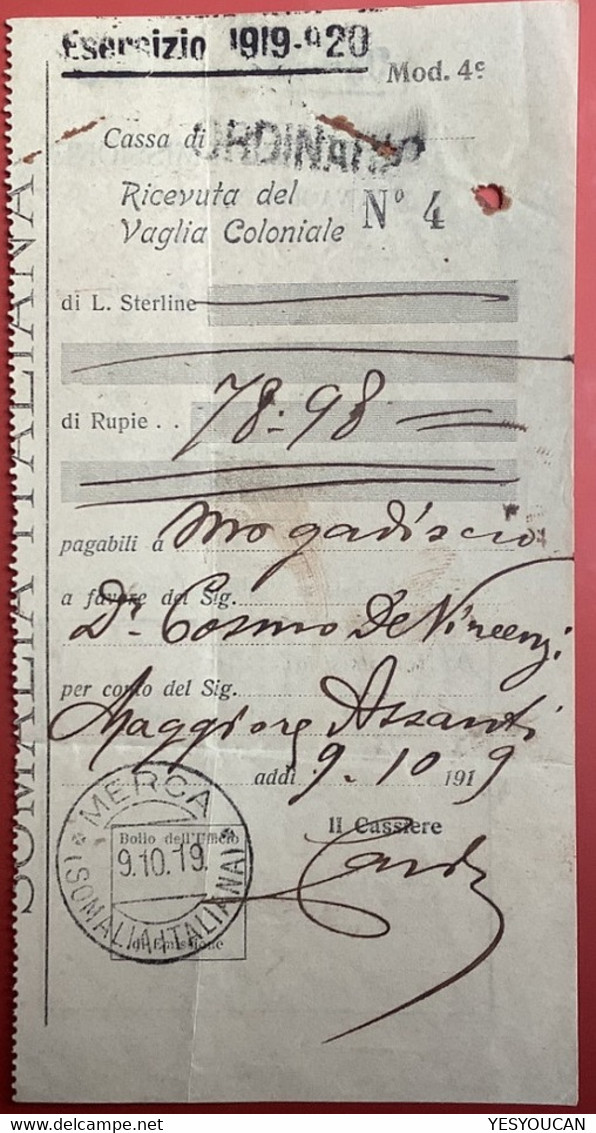 Esercizio 1919-920
Mod. 4°
Cassa di
ORDINARIO
Ricevuta del
Vaglia Coloniale N° 4
di L. Sterline
di Rupie . . 78:98
pagabili a Mogadiscio
a favore del Sig.
Dr. Cosmo De Vincenzi
per conto del Sig.
Maggiore Assanti
addì 9. 10 1919
Il Cassiere
MERCA
Bollo dell'Ufficio
9.10.19.
(SOMALIA ITALIANA)
di Emissione
SOMALIA ITALIANA
delcampe.net
YESYOUCAN